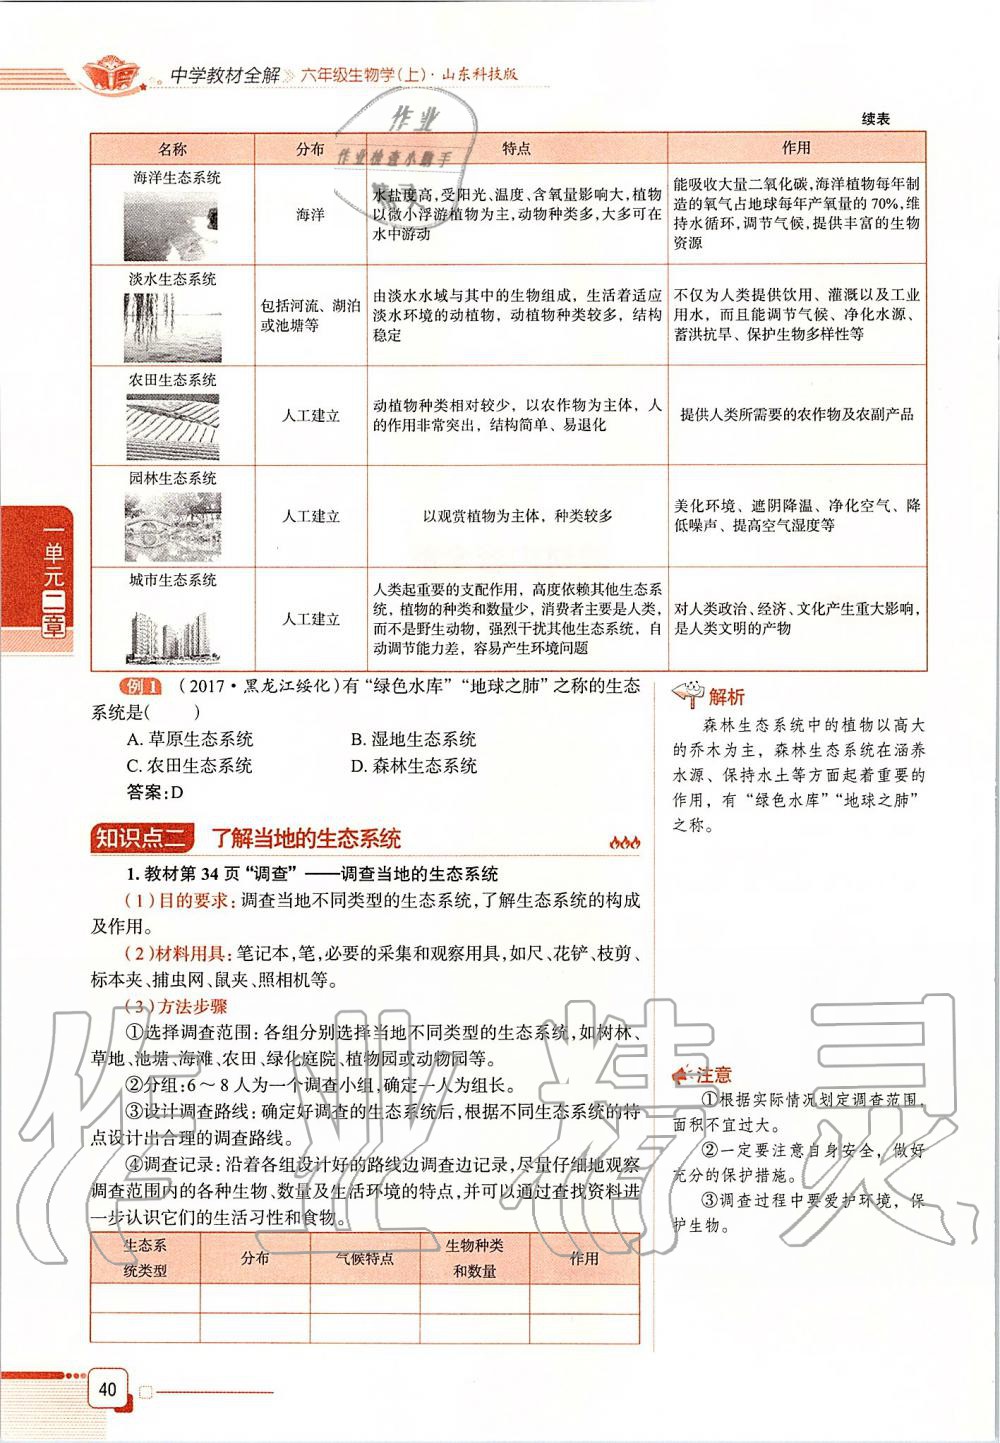 中学教材全解 六年级生物学(上)·山东科技版
续表
名称 分布 特点 作用
海洋生态系统
海洋
水盐度高,受阳光、温度、含氧量影响大,植物
以微小浮游植物为主,动物种类多,大多可在
水中游动
能吸收大量二氧化碳,海洋植物每年制
造的氧气占地球每年产氧量的 70%,维
持水循环,调节气候,提供丰富的生物
资源
淡水生态系统
包括河流、湖泊
或池塘等
由淡水水域与其中的生物组成，生活着适应
淡水环境的动植物，动植物种类较多，结构
稳定
不仅为人类提供饮用、灌溉以及工业
用水，而且能调节气候、净化水源、
蓄洪抗旱、保护生物多样性等
农田生态系统
人工建立
动植物种类相对较少，以农作物为主体，人
的作用非常突出，结构简单、易退化
提供人类所需要的农作物及农副产品
园林生态系统
人工建立
以观赏植物为主体，种类较多
美化环境、遮阴降温、净化空气、降
低噪声、提高空气湿度等
城市生态系统
人工建立
人类起重要的支配作用，高度依赖其他生态系
统，植物的种类和数量少，消费者主要是人类，
而不是野生动物，强烈干扰其他生态系统，自
动调节能力差，容易产生环境问题
对人类政治、经济、文化产生重大影响，
是人类文明的产物
例1 (2017·黑龙江绥化)有“绿色水库”“地球之肺”之称的生态
系统是( )
A. 草原生态系统 B. 湿地生态系统
C. 农田生态系统 D. 森林生态系统
答案:D
解析
森林生态系统中的植物以高大
的乔木为主，森林生态系统在涵养
水源、保持水土等方面起着重要的
作用，有“绿色水库”“地球之肺”
之称。
知识点二 了解当地的生态系统
1. 教材第 34 页“调查”——调查当地的生态系统
(1)目的要求:调查当地不同类型的生态系统,了解生态系统的构成
及作用。
(2)材料用具:笔记本,笔,必要的采集和观察用具,如尺、花铲、枝剪、
标本夹、捕虫网、鼠夹、照相机等。
(3)方法步骤
①选择调查范围:各组分别选择当地不同类型的生态系统,如树林、
草地、池塘、海滩、农田、绿化庭院、植物园或动物园等。
②分组:6～8 人为一个调查小组,确定一人为组长。
③设计调查路线:确定好调查的生态系统后,根据不同生态系统的特
点设计出合理的调查路线。
④调查记录:沿着各组设计好的路线边调查边记录,尽量仔细地观察
调查范围内的各种生物、数量及生活环境的特点,并可以通过查找资料进
一步认识它们的生活习性和食物。
注意
①根据实际情况划定调查范围,
面积不宜过大。
②一定要注意自身安全，做好
充分的保护措施。
③调查过程中要爱护环境，保
护生物。
生态系
统类型
分布
气候特点
生物种类
和数量
作用
一单元二章
40
作业
作业检查小助手
作业精灵